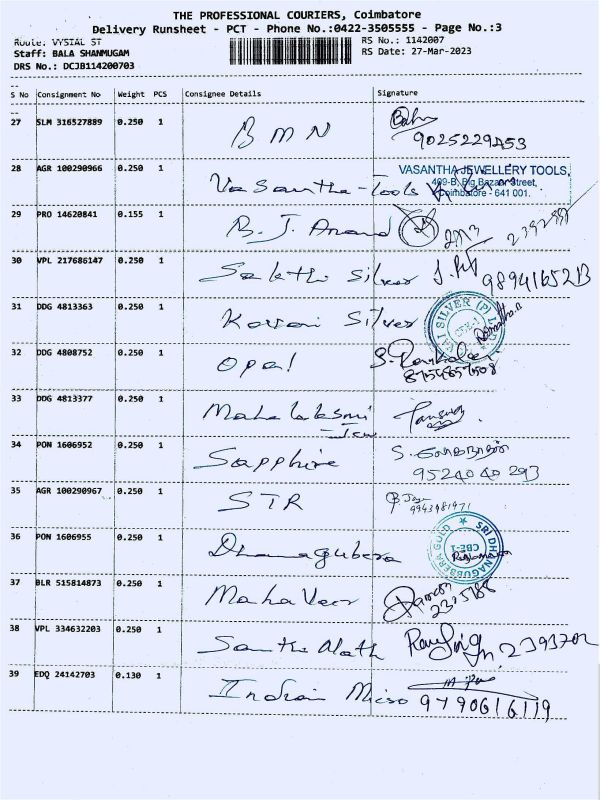 THE PROFESSIONAL COURIERS, Coimbatore
Delivery Runsheet - PCT - Phone No.:0422-3505555 - Page No.:3
Route: VYSIAL ST
RS No.: 1142007
Staff: BALA SHANMUGAM
RS Date: 27-Mar-2023
DRS No.: DCJB114200703
S No Consignment No Weight PCS Consignee Details Signature
27 SLM 316527889 0.250 1 BMN
9025229453
28 AGR 100290966 0.250 1 Vasantha-Tools
VASANTHA JEWELLERY TOOLS,
409-B, Big Bazaar Street,
Coimbatore - 641 001.
29 PRO 14620841 0.155 1 B. J. Anand
30 VPL 217686147 0.250 1 Sakthi Silver 9894165213
31 DDG 4813363 0.250 1 Silver
32 DDG 4808752 0.250 1 Opal
33 DDG 4813377 0.250 1 Mahalaksmi
34 PON 1606952 0.250 1 Sapphire
9524040293
35 AGR 100290967 0.250 1 STR
9943981971
36 PON 1606955 0.250 1 Dhanagubera
SRI DHANAGUBERA GOLD
CBE-1
37 BLR 515814873 0.250 1 MahaVeer
38 VPL 334632203 0.250 1 2393702
39 EDQ 24142703 0.130 1 Indian Micso 9790616119